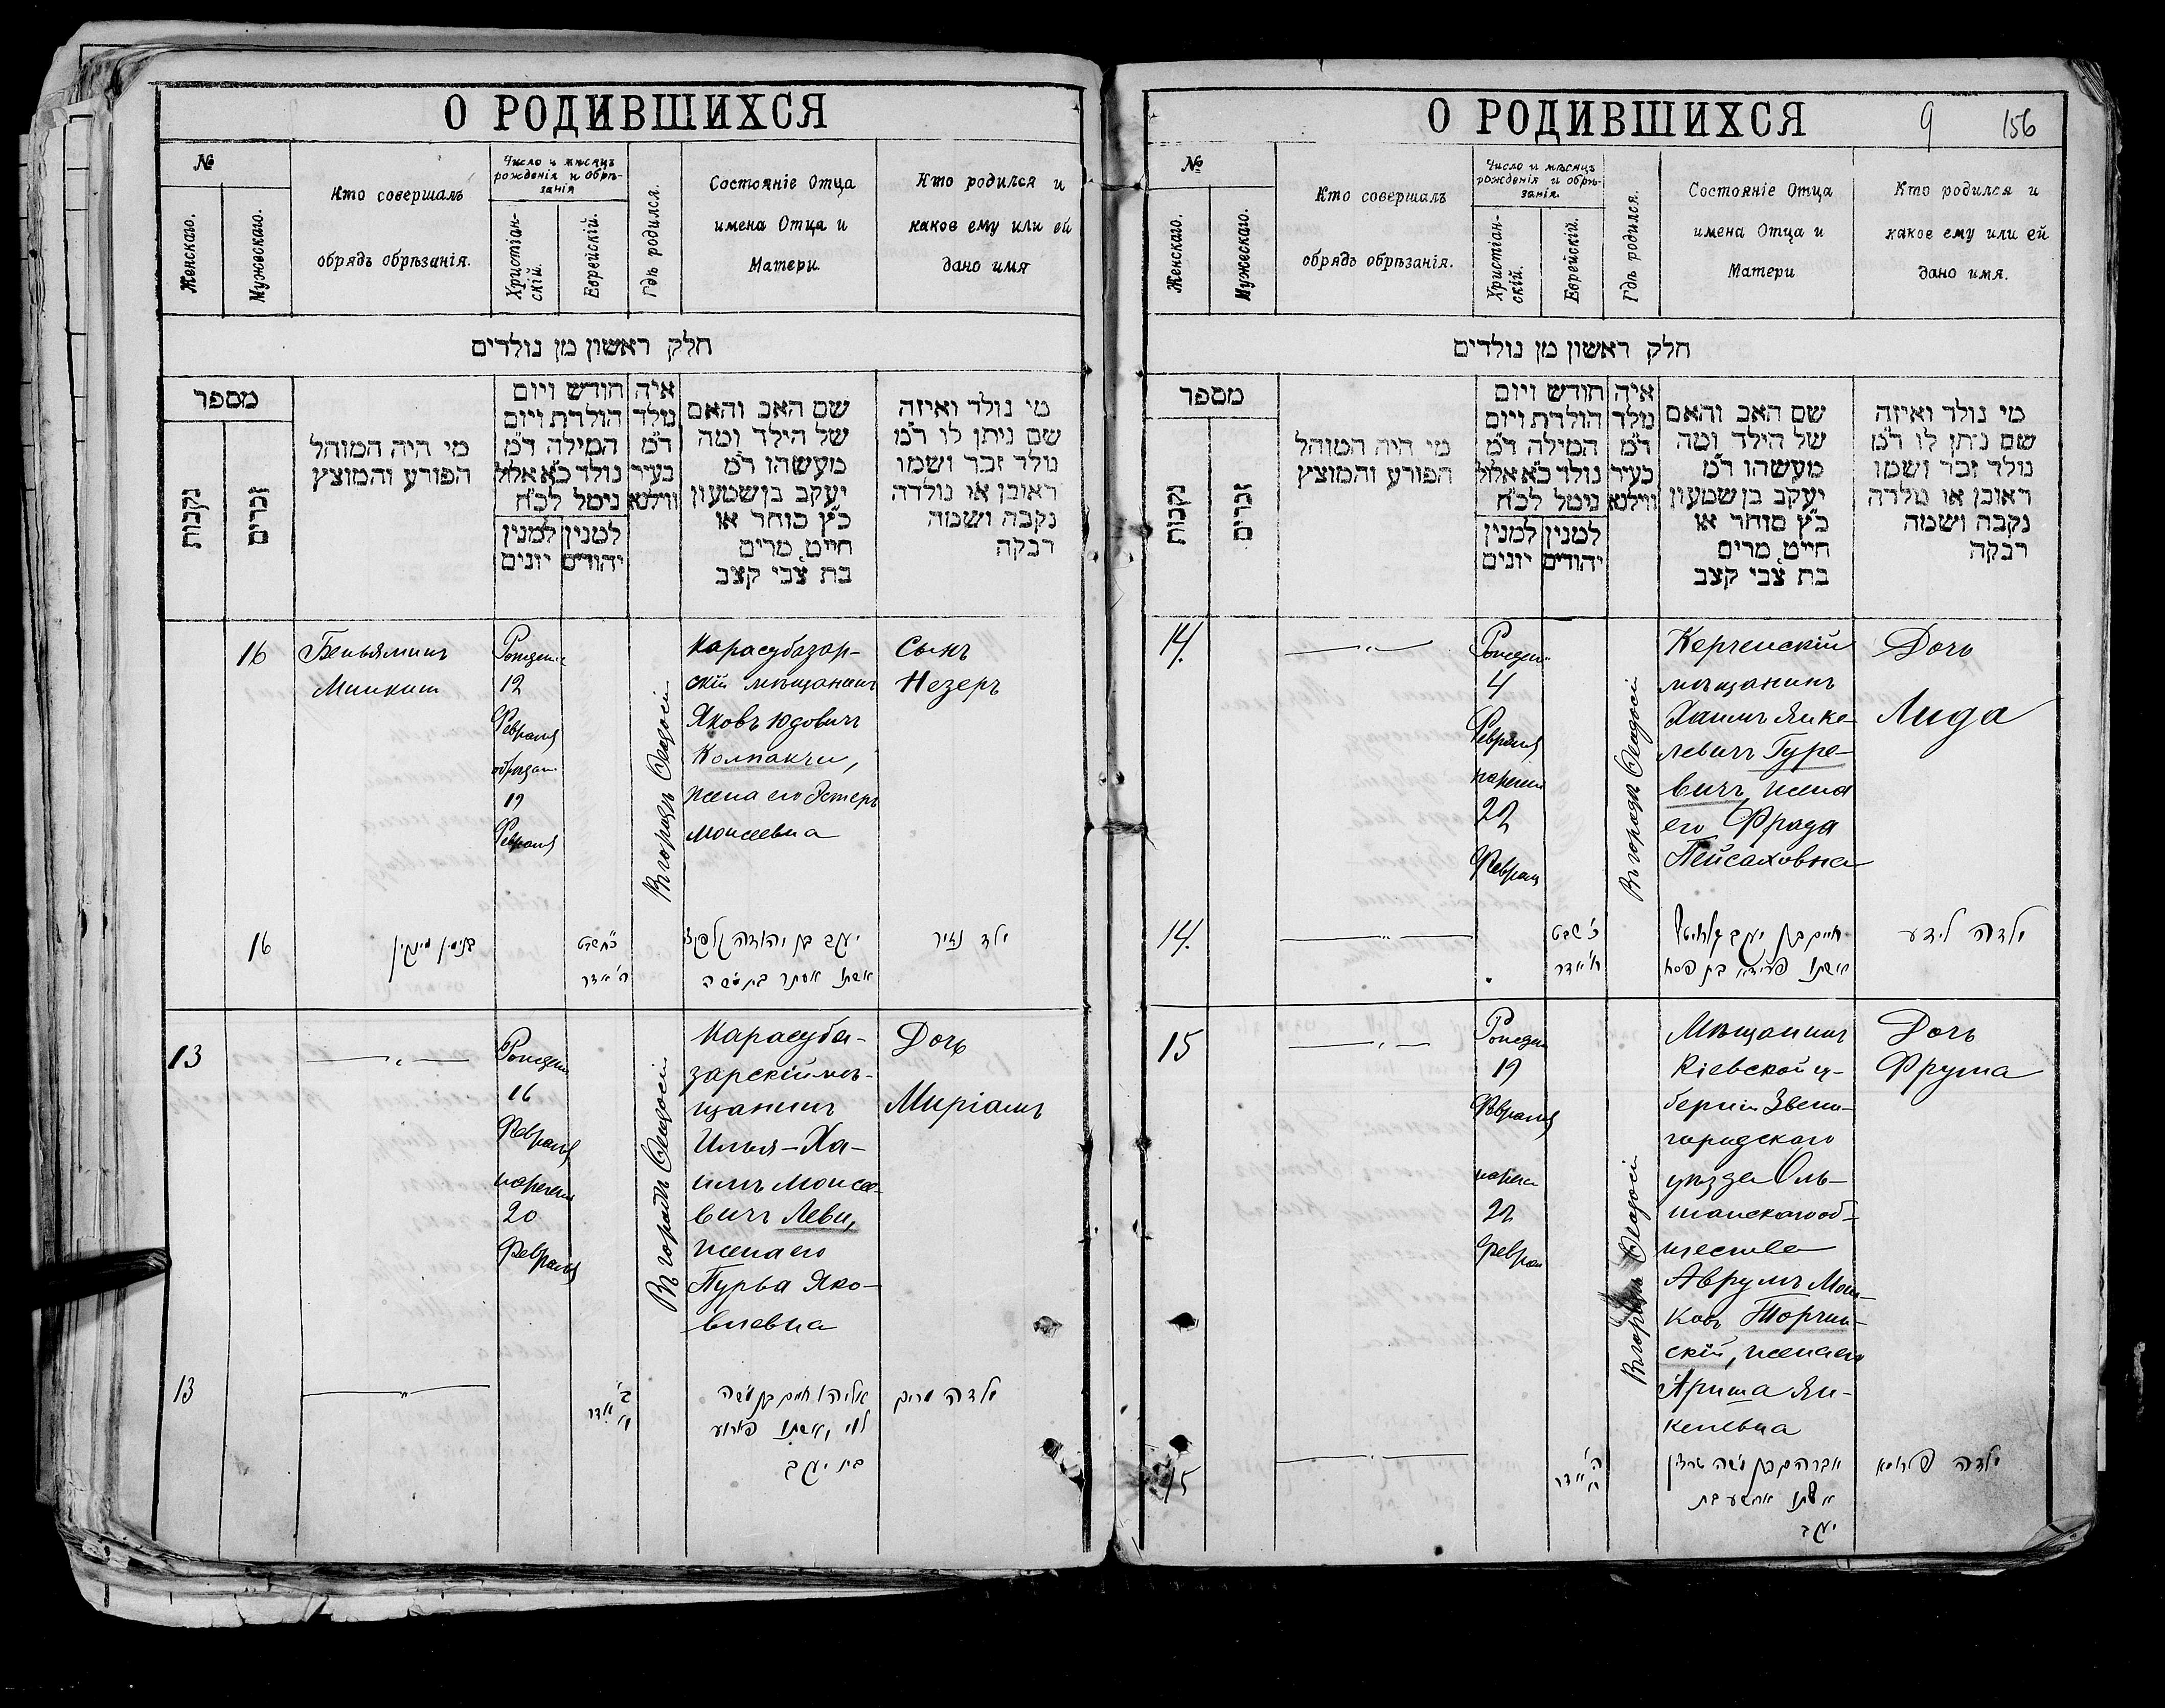 О РОДИВШИХСЯ
№
Женскаго.
Мужескаго.
Кто совершалъ
обрядъ обрѣзанія.
Число и мѣсяцъ
рожденія и Обрѣ-
занія
Христіан-
скій.
Еврейскій.
Гдѣ родился.
Состояніе Отца
имена Отца и
Матери.
Кто родился и
какое ему или ей
дано имя
חלק ראשון מן נולדים
מספר
נקבות
זכרים
מי היה המוהל
הפורע והמוצץ
חודש ויום
הולדת ויום
המילה ד״מ
נולד כ״א אלול
נימל לכ״ח
למנין יהודים
למנין יונים
איה
נולד
ד״מ
בעיר
ווילנא
שם האב והאם
של הילד ומה
מעשהו ד״מ
יעקב בן שמעון
כ״ץ סוחר או
חייט, מרים
בת צבי קצב
מי נולד ואיזה
שם ניתן לו ד״מ
נולד זכר ושמו
ראובן או נולדה
נקבה ושמה
רבקה
16
Беньяминъ
12
Февраля
19
Февраля
Въ городѣ Ѳеодосіи
Карасубазар-
скій мѣщанинъ
Яковъ Юдовичъ
Колпакчи,
жена его Эстеръ
Моисеевна
Сынъ
Незеръ
16
בנימין מינקין
כ״ח שבט
ה׳ אדר
יעקב בן יהודה קלפקצי
אשתו אסתר בת משה
ילד נזיר
13
16
Февраля
наречен
20
Февраля
Въ городѣ Ѳеодосіи
Карасуба-
зарскій мѣ-
щанинъ
Илья-Ха-
имъ Моисе-
вичъ Леви,
жена его
Пурва Яко-
влевна
Дочь
Миріамъ
13
ב׳
ו׳ אדר
אליהו חיים בן משה
לוי, אשתו פארוע
בת יעקב
ילדה מרים
О РОДИВШИХСЯ
9
156
№
Женскаго.
Мужескаго.
Кто совершалъ
обрядъ обрѣзанія.
Число и мѣсяцъ
рожденія и обрѣ-
занія.
Христіан-
скій.
Еврейскій.
Гдѣ родился.
Состояніе Отца
имена Отца и
Матери
Кто родился и
какое ему или ей
дано имя.
חלק ראשון מן נולדים
מספר
נקבות
זכרים
מי היה המוהל
הפורע והמוצץ
חודש ויום
הולדת ויום
המילה ד״מ
נולד כ״א אלול
נימל לכ״ח
למנין יהודים
למנין יונים
איה
נולד
ד״מ
בעיר
ווילנא
שם האב והאם
של הילד ומה
מעשהו ד״מ
יעקב בן שמעון
כ״ץ סוחר או
חייט, מרים
בת צבי קצב
מי נולד ואיזה
שם ניתן לו ד״מ
נולד זכר ושמו
ראובן או נולדה
נקבה ושמה
רבקה
14.
4
Февраля
наречен
22
Феврал
Въ городѣ Ѳеодосіи
Керченскій
мѣщанинъ
Хаимъ Янке-
левичъ Гуре-
вичъ, жена
его Фрада
Пейсаховна
Дочь
Лида
14.
כ׳ שבט
ח׳ אדר
חיים בן יעקב גורוויטש
אשתו פריידא בת פסח
ילדה לידע
15
19
Февраля
нарече
22
Феврал
Въ городѣ Ѳеодосіи
Мѣщанинъ
Кіевской гу-
берніи Звени-
городскаго
уѣзда Оль-
шанскаго об-
щества
Аврумъ Мош-
ковъ Торчин-
скій, жена его
Ариша Ян-
келевна
Дочь
Фрума
15
ה׳
ח׳ אדר
אברהם בן משה
אשתו
בת
יעקב
ילדה פרומא